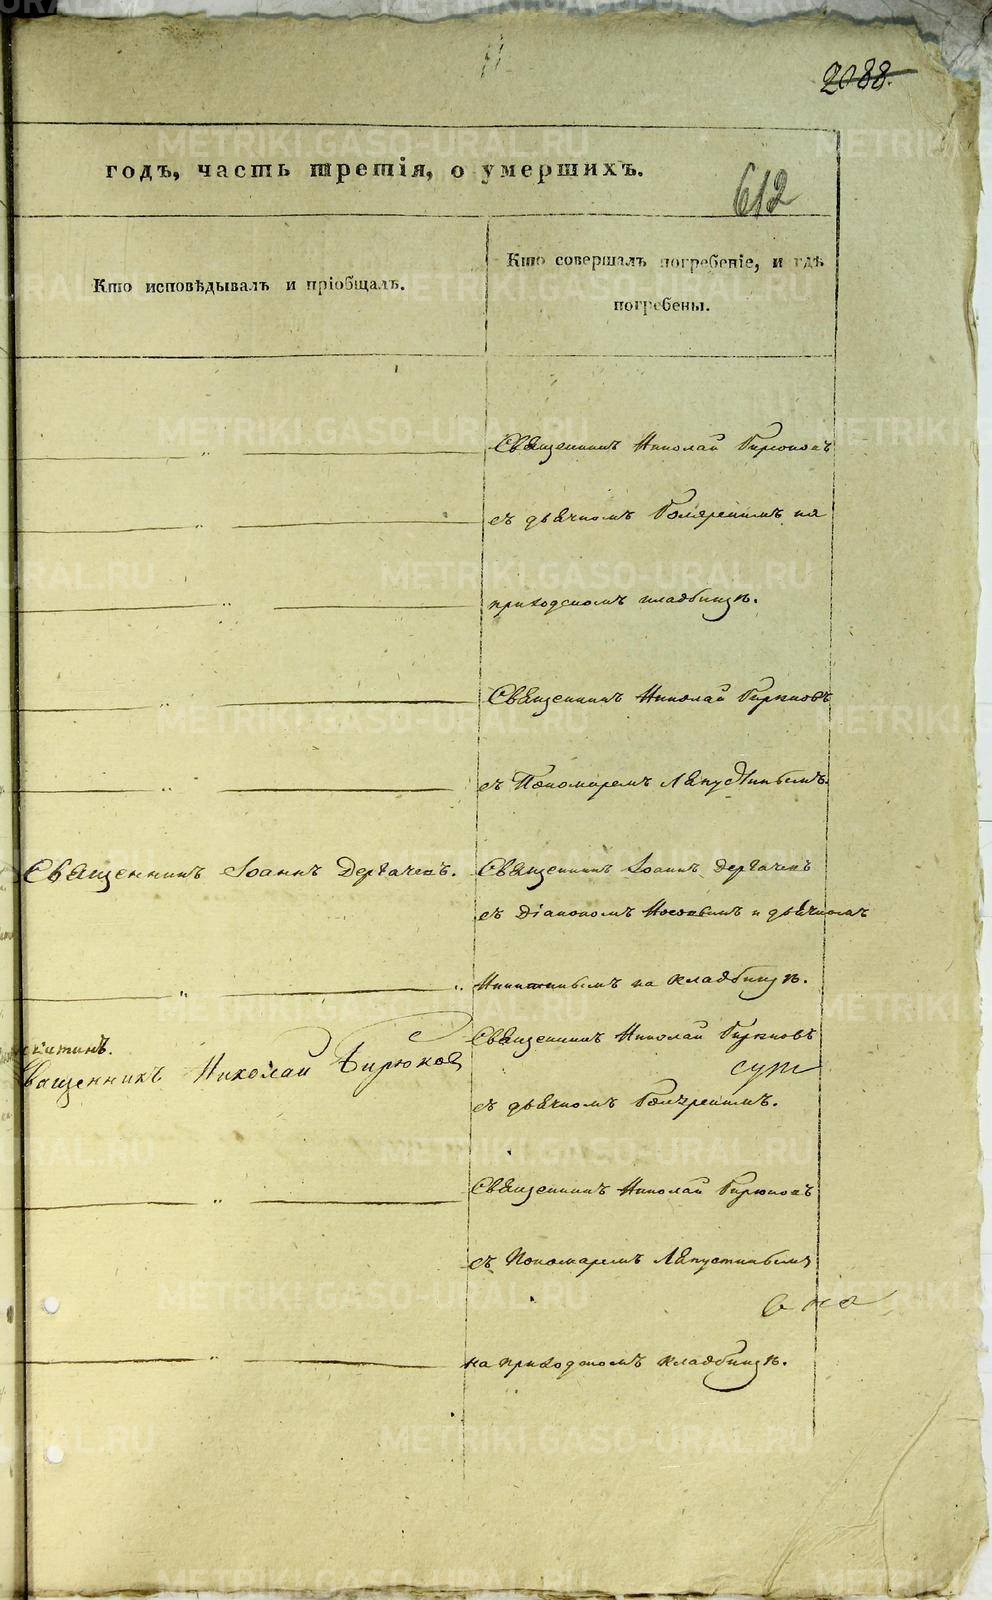 2088.
годъ, часть третія, о умершихъ.
612
Кто исповѣдывалъ и пріобщалъ.
Кто совершалъ погребеніе, и гдѣ
погребены.
Священникъ Николай Бирюковъ
съ дьячкомъ на
приходскомъ кладбищѣ.
Священникъ Николай Бирюковъ
съ Пономаремъ Лапустинымъ.
Священникъ Іоаннъ Дергачевъ.
Священникъ Іоаннъ Дергачевъ
съ Діакономъ Носовымъ и дьячкомъ
Никитинымъ на кладбищѣ.
Священникъ Николай Бирюковъ
Священникъ Николай Бирюковъ
съ дьячкомъ
Священникъ Николай Бирюковъ
съ Пономаремъ Лапустинымъ
на приходскомъ кладбищѣ.
METRIKI.GASO-URAL.RU